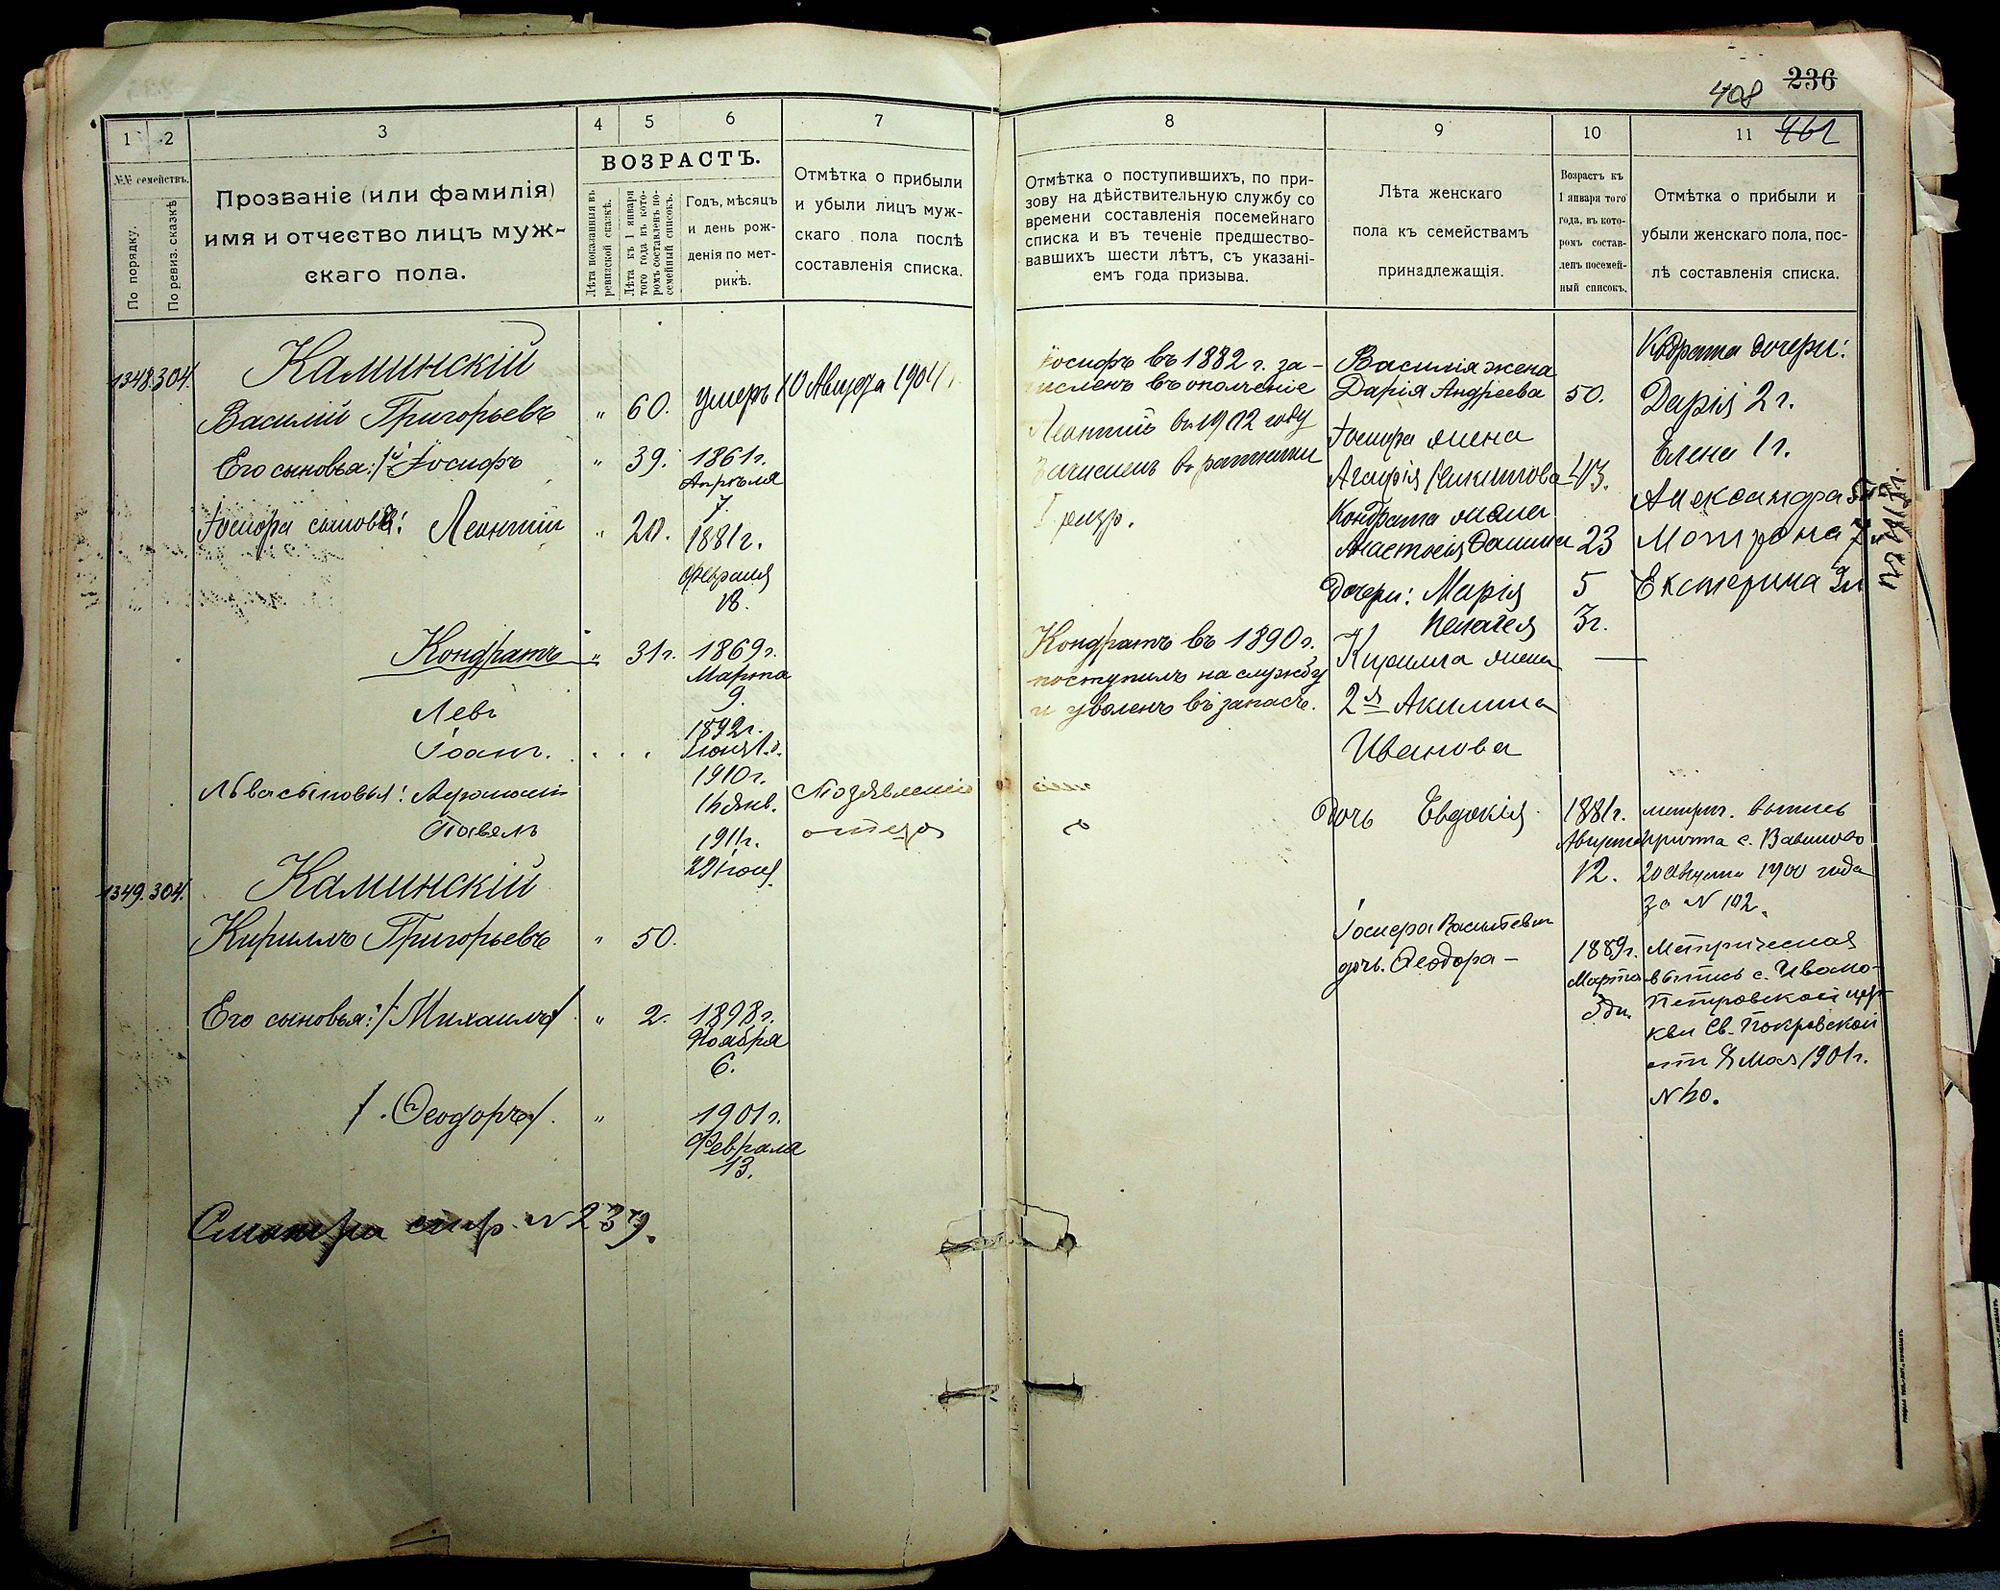 236
408
1
2
3
4
5
6
7
№№ семействъ.
По порядку.
По ревиз. сказкѣ
Прозваніе (или фамилія)
имя и отчество лицъ муж-
скаго пола.
ВОЗРАСТЪ.
Лѣта показанныя въ
ревизской сказкѣ.
Лѣта къ 1 января
того года въ кото-
ромъ составленъ по-
семейный списокъ.
Годъ, мѣсяцъ
и день рож-
денія по мет-
рикѣ.
Отмѣтка о прибыли
и убыли лицъ муж-
скаго пола послѣ
составленія списка.
1348. 304.
Каминскій
Василій Григорьевъ " 60. умеръ 10 Августа 1904 г.
Его сыновья: Іосифъ " 39. 1861 г.
Апрѣля
7.
Іосифа сыновья: Леонтій " 20. 1881 г.
Февраля
18.
Кондратъ " 31 г. 1869 г.
Марта
9.
Левъ
1892 г.
Іоанъ.
1910 г.
Льва сыновья:
16 Янв.
Павелъ
1911 г.
отца
29 Іюня
1349. 304.
Каминскій
Кириллъ Григорьевъ " 50.
Его сыновья: Михаилъ " 2. 1898 г.
Ноября
6.
Ѳеодоръ " 1901 г.
Февраля
13.
Смотри стр. N 239.
8
9
10
11
Отмѣтка о поступившихъ, по при-
зову на дѣйствительную службу со
времени составленія посемейнаго
списка и въ теченіе предшество-
вавшихъ шести лѣтъ, съ указані-
емъ года призыва.
Лѣта женскаго
пола къ семействамъ
принадлежащія.
Возрастъ къ
1 января того
года, въ кото-
ромъ состав-
ленъ посемей-
ный списокъ.
Отмѣтка о прибыли и
убыли женскаго пола, пос-
лѣ составленія списка.
Іосифъ въ 1882 г. за-
численъ въ ополченіе
Леонтій въ 1902 году
Зачисленъ въ ратники
I разр.
Кондратъ въ 1890 г.
поступилъ на службу
и уволенъ въ запасъ.
Василія жена
Дарія Андреева 50.
Іосифа жена
Агафія Никитова 43.
Кондрата жена
Анастасія 23
Дочери: Марія 5
Пелагея 3 г.
Кирилла жена —
2я Акилина
Иванова
Дочь Евдокія 1881 г.
Августа
12.
Іосифа Васильева
дочь. Ѳеодора — 1889 г.
Марта
5 дн.
Кодрата дочери:
Дарія 2 г.
Елена 1 г.
Александра 5
Мотрона 7
Екатерина
метрич. выпись
причта с. Вавилово
20 Августа 1900 года
за N 102.
Метрическая
выпись с. Ивано-
Петровской цер-
кви Св. Покровской
отъ 8 Мая 1901 г.
N 60.